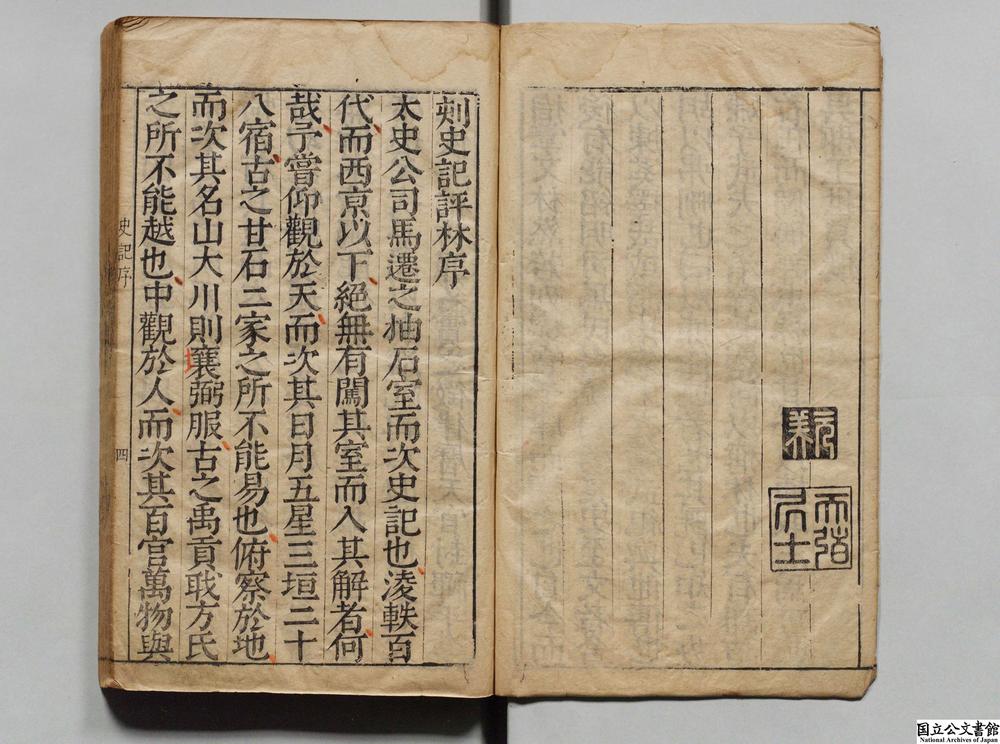 刻史記評林序
太史公司馬遷之抽石室而次史記也淩軼百
代而西京以下絕無有闖其室而入其解者何
哉予嘗仰觀於天而次其日月五星三垣二十
八宿古之甘石二家之所不能易也俯察於地
而次其名山大川則襄弼服古之禹貢職方氏
之所不能越也中觀於人而次其百官萬物與
史記序
四
国立公文書館
National Archives of Japan